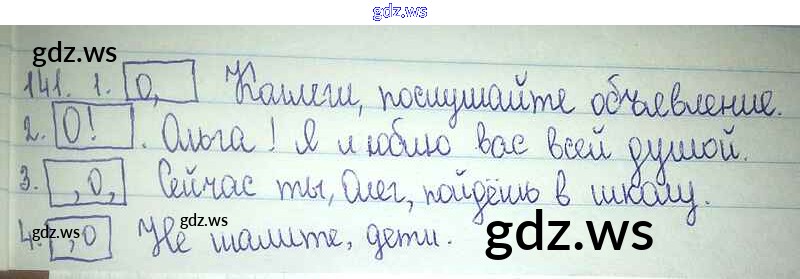 gdz.ws
gdz.ws
141. 1. О, Коллеги, послушайте объявление.
2. О! . Ольга! Я люблю вас всей душой.
3. , О, Сейчас ты, Олег, пойдёшь в школу.
gdz.ws gdz.ws
4. , о Не шалите, дети.
gdz.ws